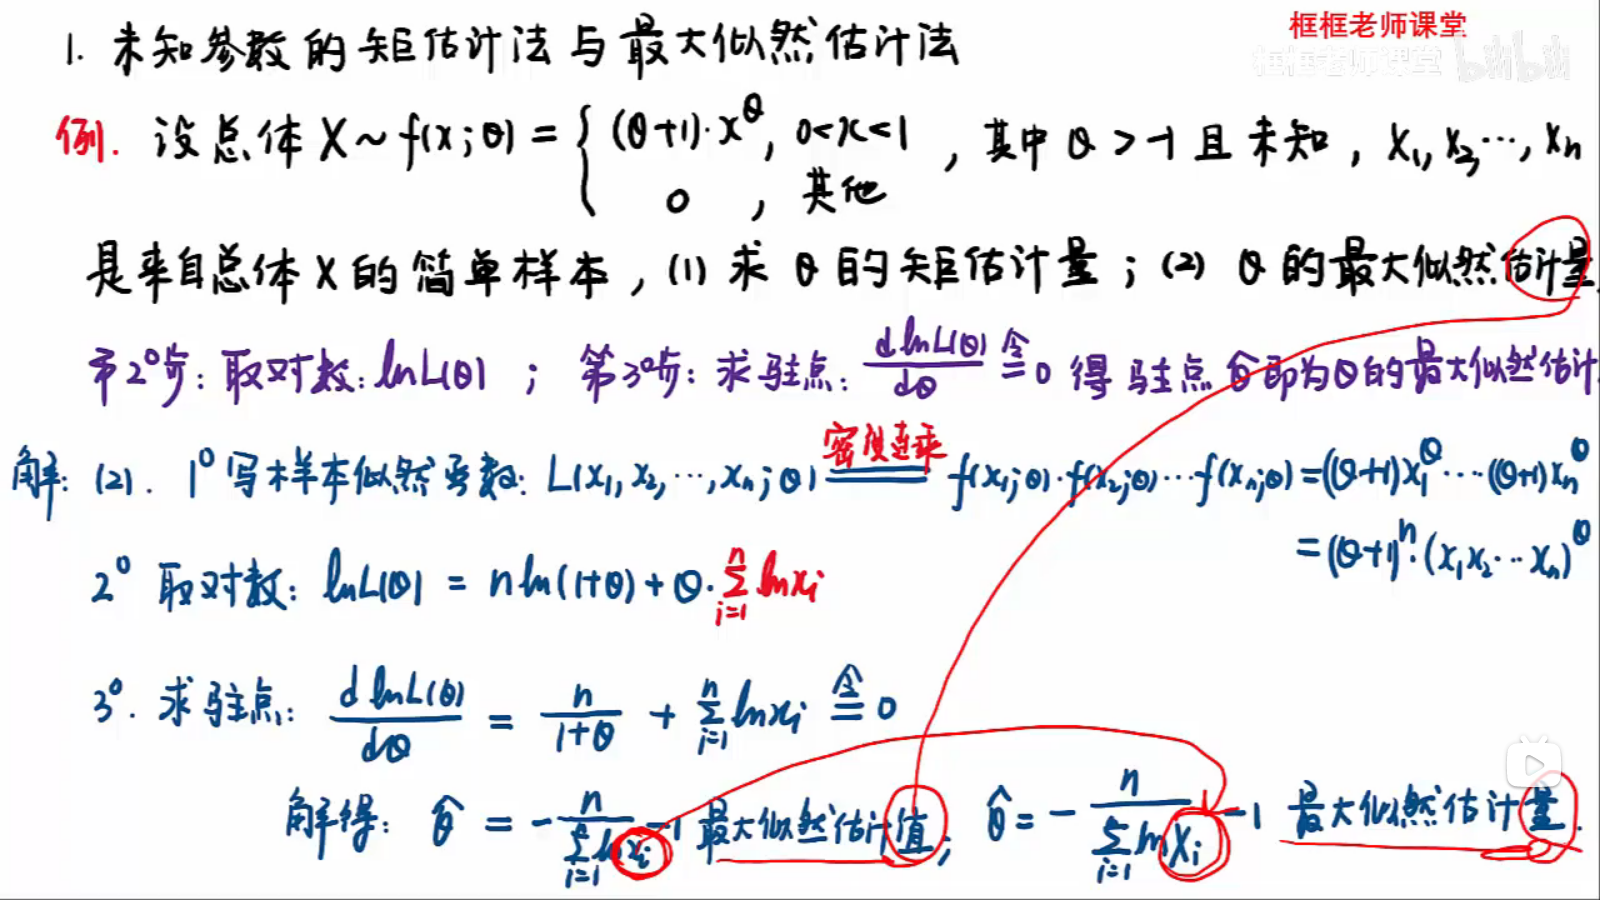 框框老师课堂
框框老师课堂 bilibili
1. 未知参数的矩估计法与最大似然估计法
例. 设总体 X ~ f(x;θ) = { (θ+1)·x^θ, 0<x<1 , 其中 θ > -1 且未知, X₁, X₂, ···, Xₙ
0 , 其他
是来自总体 X 的简单样本, (1) 求 θ 的矩估计量; (2) θ 的最大似然估计量.
第2⁰步: 取对数: lnL(θ) ; 第3⁰步: 求驻点: d lnL(θ)/dθ 令= 0 得驻点 θ̂ 即为θ的最大似然估计
密度连乘
解: (2). 1⁰ 写样本似然函数: L(x₁, x₂, ···, xₙ; θ) = f(x₁;θ)·f(x₂;θ)···f(xₙ;θ) = ((θ+1)x₁^θ ···((θ+1)xₙ^θ
= (θ+1)ⁿ·(x₁x₂···xₙ)^θ
2⁰ 取对数: lnL(θ) = n ln(1+θ) + θ·∑ᵢ₌₁ⁿ lnxᵢ
3⁰. 求驻点: d lnL(θ)/dθ = n/(1+θ) + ∑ᵢ₌₁ⁿ lnxᵢ 令= 0
解得: θ̂ = - n/∑ᵢ₌₁ⁿ lnxᵢ -1 最大似然估计值; θ̂ = - n/∑ᵢ₌₁ⁿ lnXᵢ -1 最大似然估计量.